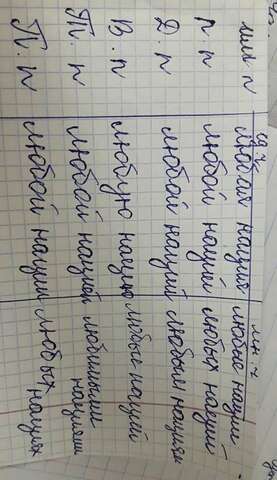 ед ч. мн. ч
Им п любая нация любые нации
Р п любой нации любых наций
Д. п любой нации любым нациям
В. п любую нацию любые нации
Тв. п любой нацией любимыми нациями
П. п любой нации любых нациях